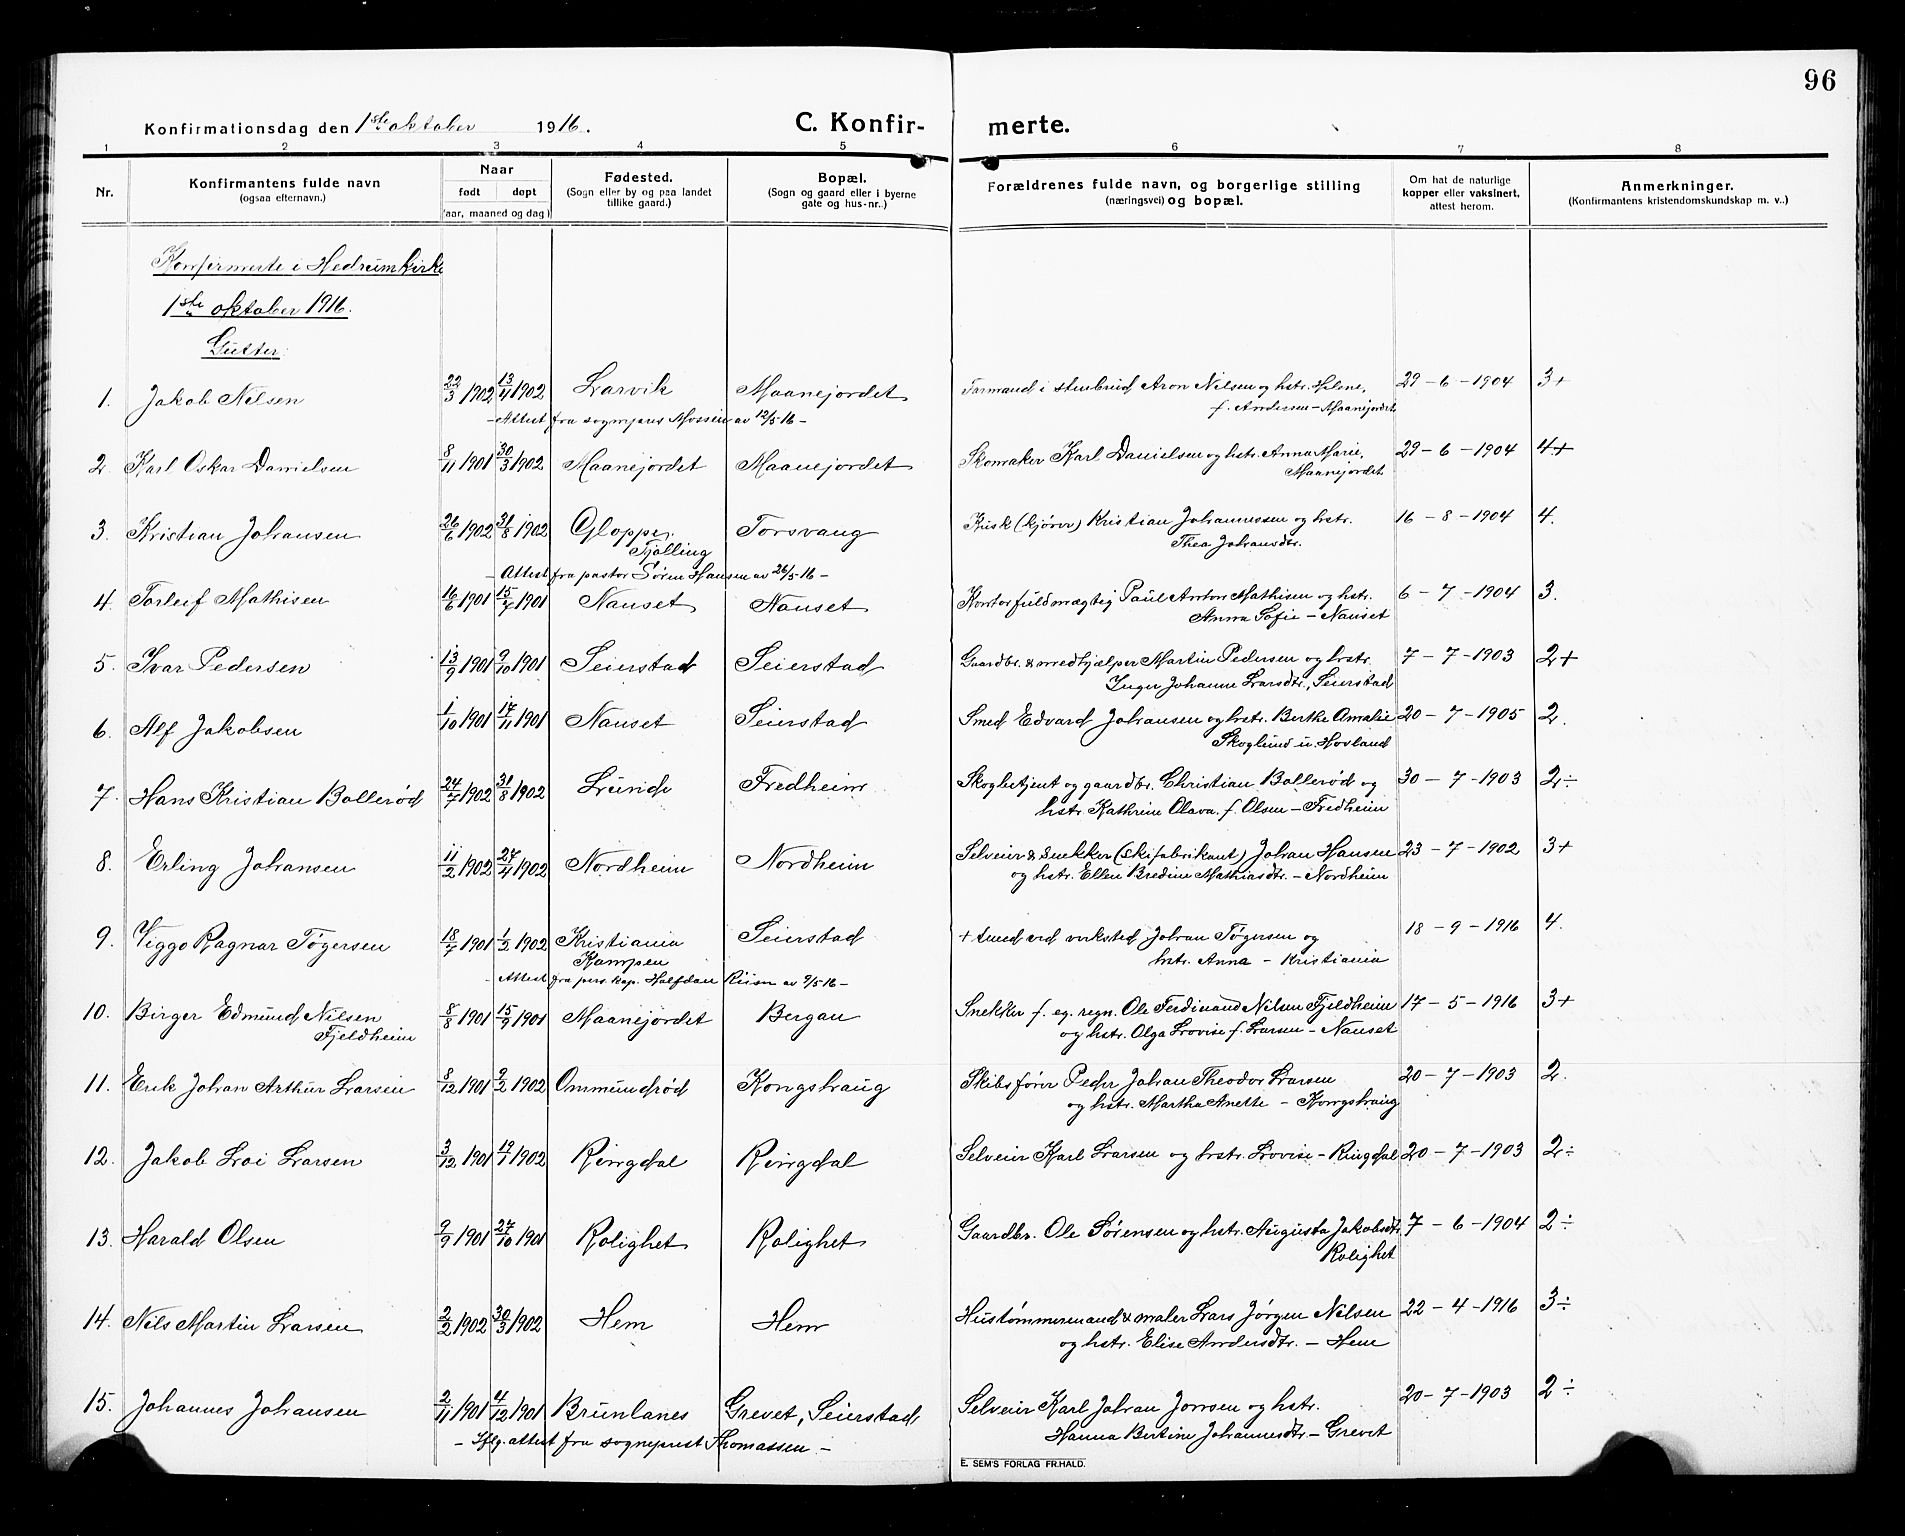 96
Konfirmationsdag den 1ste oktober 1916.
C. Konfir- merte.
1 2 3 4 5 6 7 8
Nr.
Konfirmantens fulde navn
(ogsaa efternavn.)
Naar
født døpt
(aar, maaned og dag)
Fødested.
(Sogn eller by og paa landet
tillike gaard.)
Bopæl.
(Sogn og gaard eller i byerne
gate og hus-nr..)
Forældrenes fulde navn, og borgerlige stilling
(næringsvei) og bopæl.
Om hat de naturlige
kopper eller vaksinert,
attest herom.
Anmerkninger.
(Konfirmantens kristendomskundskap m. v..)
Konfirmerte i Hedrum kirke
1ste oktober 1916.
Gutter:
1. Jakob Nilsen 22/3 1902 13/4 1902 Larvik Maanejordet Formand i stenbrud Aron Nilsen og hstr. Helene, 29-6-1904 3+
f. Andersen - Maanejordet
- Attest fra sogneprest Mossin av 12/5-16 -
2. Karl Oskar Danielsen 8/11 1901 30/3 1902 Maanejordet Maanejordet Skomaker Karl Danielsen og hstr. Anna Marie, 29-6-1904 4+
Maanejordet
3. Kristian Johansen 26/6 1902 31/8 1902 Gloppe, Torsvang Kusk (kjører) Kristian Johannessen og hstr. 16-8-1904 4.
Tjølling Thea Johansdtr.
- Attest fra pastor Søren Hansen av 26/5-16 -
4. Torleif Mathisen 16/6 1901 15/7 1901 Nanset Nanset Kontorfuldmægtig Paul Anton Mathisen og hstr. 6-7-1904 3.
Anna Sofie - Nanset
5. Ivar Pedersen 13/9 1901 9/10 1901 Seierstad Seierstad Gaardbr. & medhjælper Martin Pedersen og hstr. 7-7-1903 2+
Inger Johanne Larsdtr., Seierstad
6. Alf Jakobsen 1/10 1901 17/11 1901 Nanset Seierstad Smed Edvard Johansen og hstr. Berthe Amalie 20-7-1905 2.
Skoglund u. Hovland
7. Hans Kristian Bollerød 24/7 1902 31/8 1902 Lunde Fredheim Skogbetjent og gaardbr. Christian Bollerød og 30-7-1903 2÷
hstr. Kathrine Olava f. Olsen - Fredheim
8. Erling Johansen 11/2 1902 27/4 1902 Nordheim Nordheim Selveier & snekker (skifabrikant) Johan Hansen 23-7-1902 3+
og hstr. Ellen Bredine Mathiasdtr. - Nordheim
9. Viggo Ragnar Tøgersen 18/7 1901 1/2 1902 Kristiania Seierstad + smed ved verksted Johan Tøgersen og 18-9-1916 4.
Kampen hstr. Anna - Kristiania
- Attest fra pers. kap. Halfdan Riisn av 9/5-16 -
10. Birger Edmund Nilsen 8/8 1901 15/9 1901 Maanejordet Bergan Snekker f. eg. regn. Ole Ferdinand Nilsen Fjeldheim 17-5-1916 3+
Fjeldheim og hstr. Olga Lovise f. Larsen - Nanset
11. Erik Johan Arthur Larsen 8/12 1901 9/2 1902 Ommundrød Kongshaug Skibsfører Peder Johan Theodor Larsen 20-7-1903 2.
og hstr. Martha Anette - Kongshaug
12. Jakob Loi Larsen 3/12 1901 19/1 1902 Ringdal Ringdal Selveier Karl Larsen og hstr. Lovise - Ringdal 20-7-1903 2÷
13. Harald Olsen 9/9 1901 27/10 1901 Rolighet Rolighet Gaardbr. Ole Sørensen og hstr. Augusta Jakobsdtr. 7-6-1904 2÷
Rolighet
14. Nils Martin Larsen 2/2 1902 30/3 1902 Hem Hem Hustømmermand & maler Lars Jørgen Nilsen 22-4-1916 3÷
og hstr. Elise Andersdtr. - Hem
15. Johannes Johansen 2/11 1901 4/12 1901 Brunlanes Grevet, Seierstad Selveier Karl Johan Jonsen og hstr. 20-7-1903 2÷
Hanna Bertine Johannesdtr. - Grevet
- Iflg. attest fra sogneprest Thomassen -
E. SEM'S FORLAG FR.HALD.